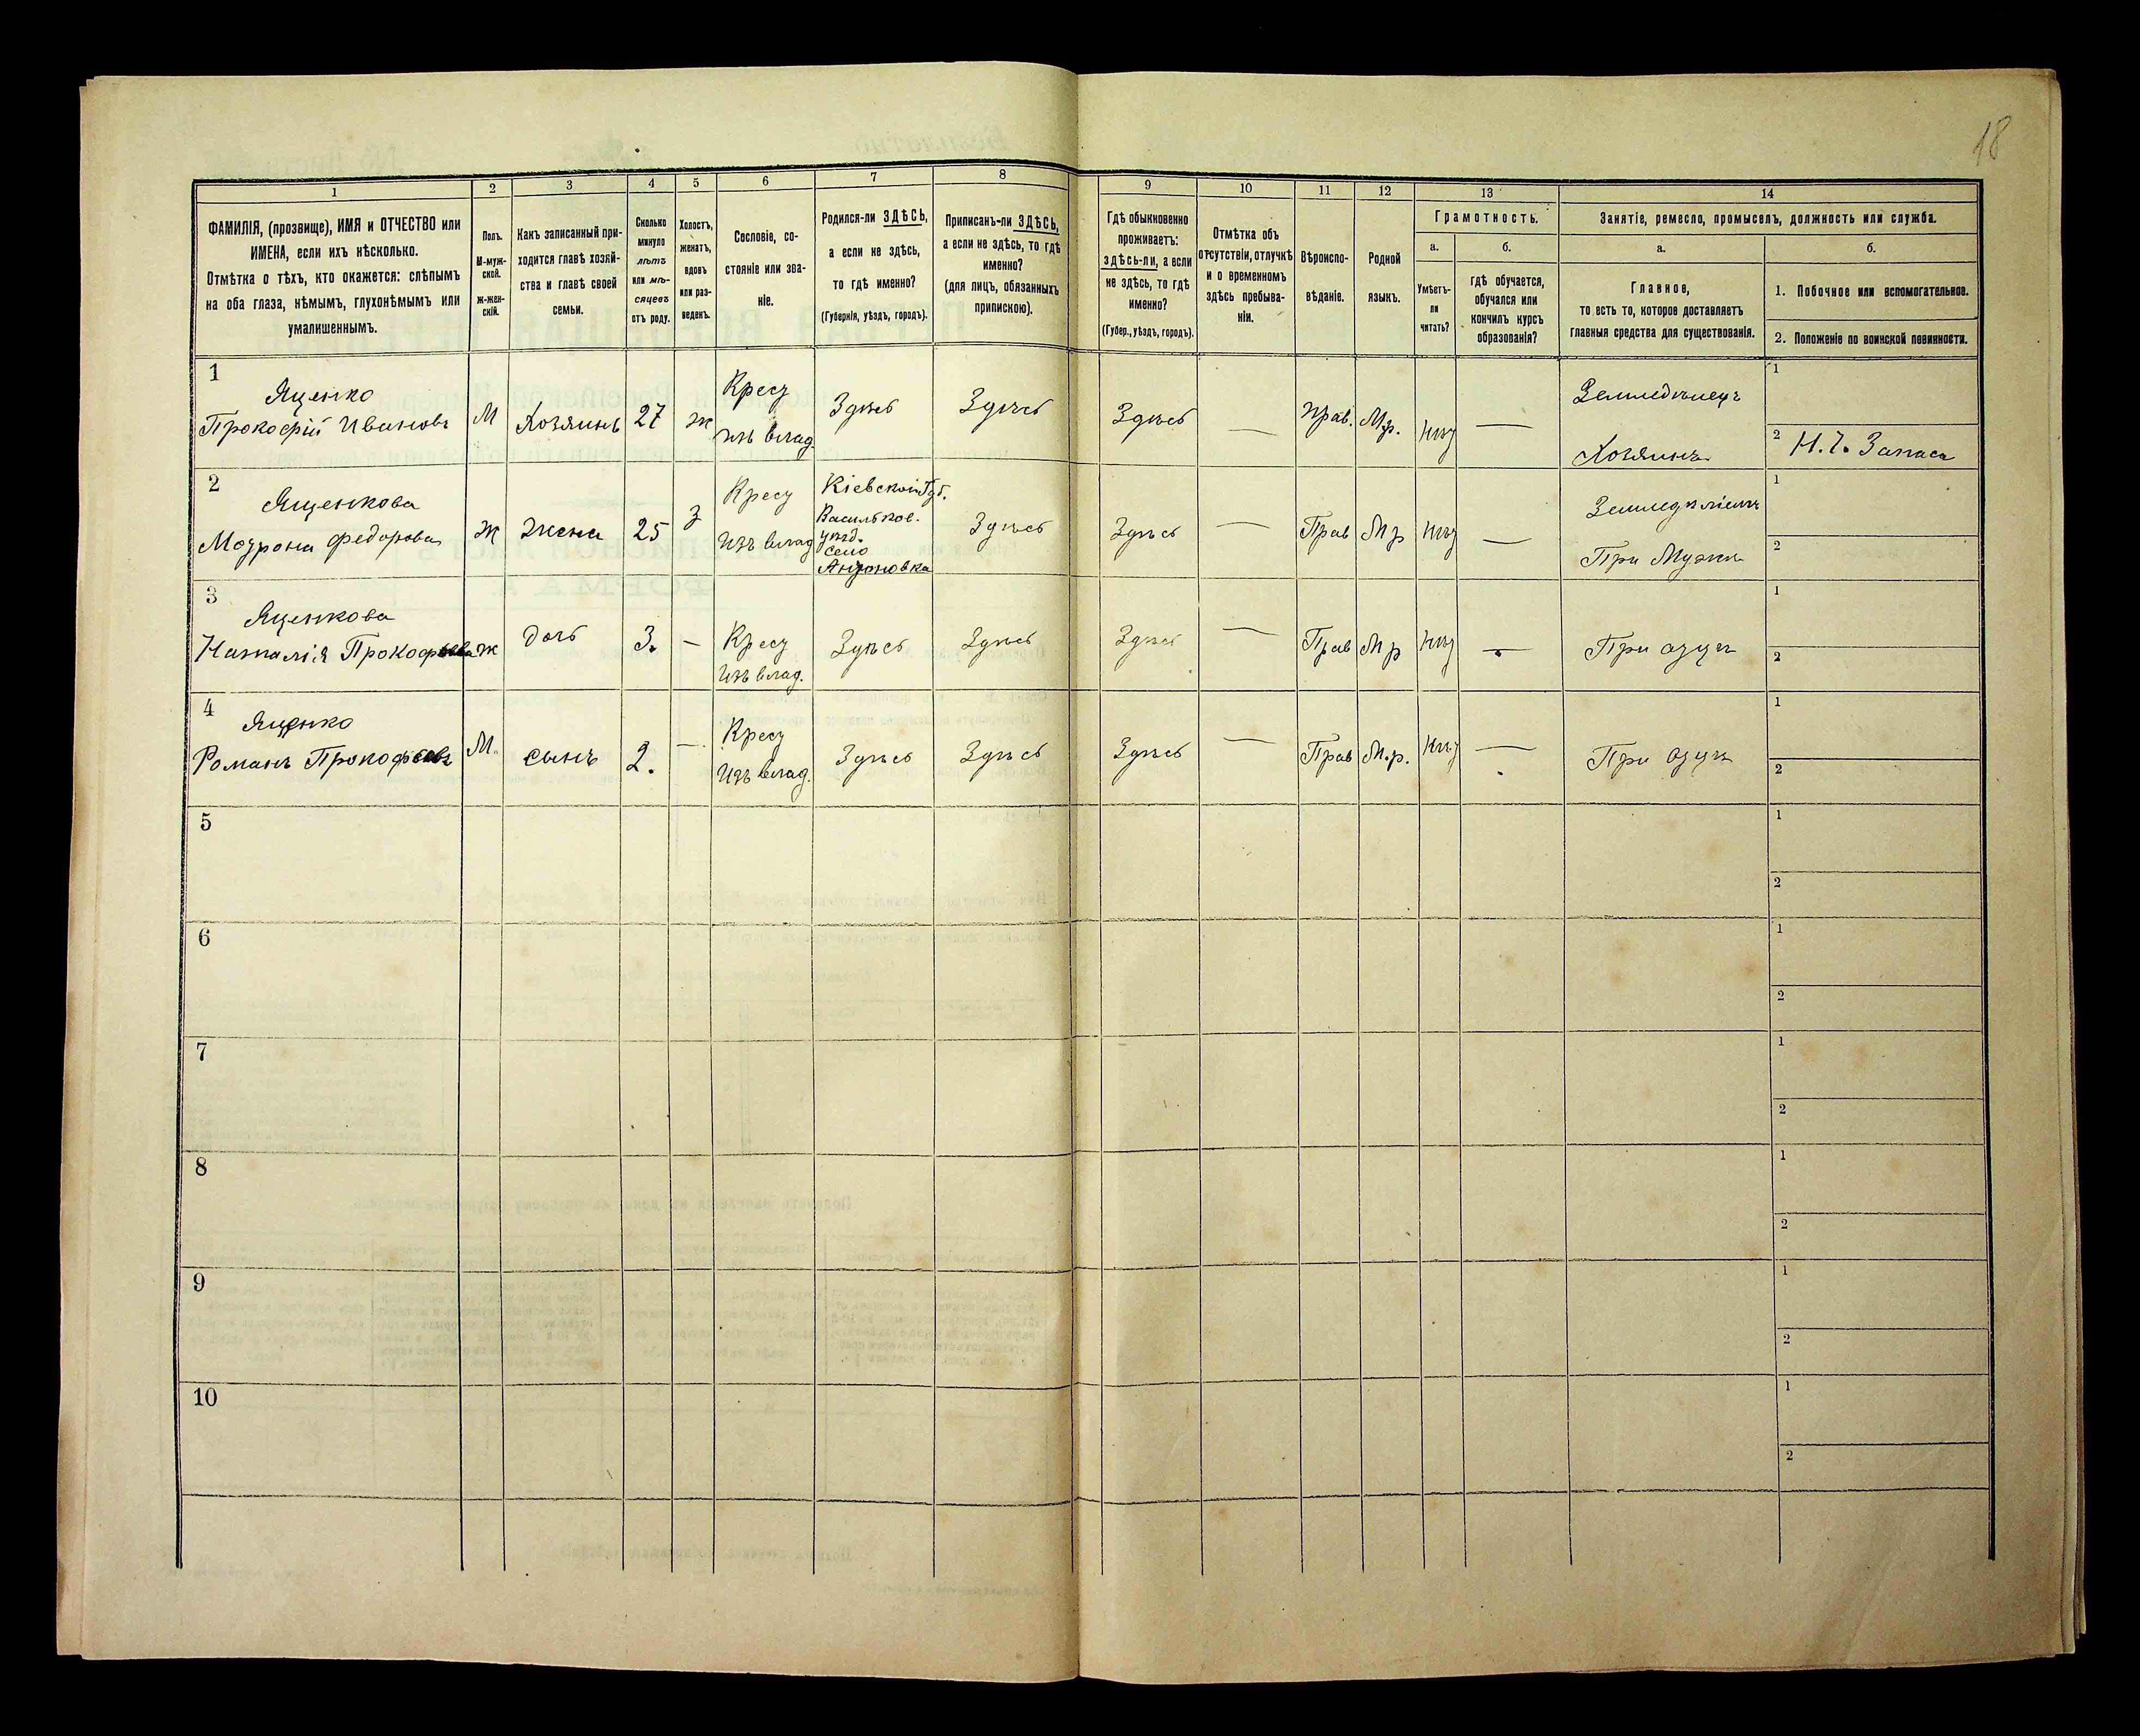 18
1 2 3 4 5 6 7 8 9 10 11 12 13 14
ФАМИЛІЯ, (прозвище), ИМЯ и ОТЧЕСТВО или
ИМЕНА, если ихъ нѣсколько.
Отмѣтка о тѣхъ, кто окажется: слѣпымъ
на оба глаза, нѣмымъ, глухонѣмымъ или
умалишеннымъ.
Полъ.
М-муж-
ской.
Ж-жен-
скій.
Какъ записанный при-
ходится главѣ хозяй-
ства и главѣ своей
семьи.
Сколько
минуло
лѣтъ
или мѣ-
сяцевъ
отъ роду.
Холостъ,
женатъ,
вдовъ
или раз-
веденъ.
Сословіе, со-
стояніе или зва-
ніе.
Родился-ли ЗДѢСЬ,
а если не здѣсь,
то гдѣ именно?
(Губернія, уѣздъ, городъ).
Приписанъ-ли ЗДѢСЬ,
а если не здѣсь, то гдѣ
именно?
(для лицъ, обязанныхъ
припискою).
Гдѣ обыкновенно
проживаетъ:
здѣсь-ли, а если
не здѣсь, то гдѣ
именно?
(Губер., уѣздъ, городъ).
Отмѣтка объ
отсутствіи, отлучкѣ
и о временномъ
здѣсь пребыва-
ніи.
Вѣроиспо-
вѣданіе.
Родной
языкъ.
Грамотность.
а.
Умѣетъ-
ли
читать?
б.
гдѣ обучается,
обучался или
кончилъ курсъ
образованія?
Занятіе, ремесло, промыселъ, должность или служба.
а.
Главное,
то есть то, которое доставляетъ
главныя средства для существованія.
б.
1. Побочное или вспомогательное.
2. Положеніе по воинской повинности.
1
Яценко
Прокофій Ивановъ
М
Хозяинъ
27
ж
Крест
изъ влад.
Здѣсь
Здѣсь
Здѣсь
—
Прав.
М.р.
Нѣт
—
Земледѣлецъ
Хозяинъ
1
2 Н. Ч. Запаса
2
Яценкова
Мотрона Федорова
Ж
Жена
25
З
Крест
Изъ влад
Кіевской Губ.
Васильков.
уѣзд.
село
Антоновка
Здѣсь
Здѣсь
—
Прав
М р
Нѣт
—
Земледѣліемъ
При Мужѣ
1
2
3
Яценкова
Наталія Прокофьева
ж
дочь
3.
—
Крест
Изъ влад.
Здѣсь
Здѣсь
Здѣсь
—
Прав
М р
Нѣт
—
При отцѣ
1
2
4
Яценко
Романъ Прокофьевъ
М.
сынъ
2.
—
Крест
Изъ влад.
Здѣсь
Здѣсь
Здѣсь
—
Прав
М.р.
Нѣт
—
При отцѣ
1
2
5
1
2
6
1
2
7
1
2
8
1
2
9
1
2
10
1
2